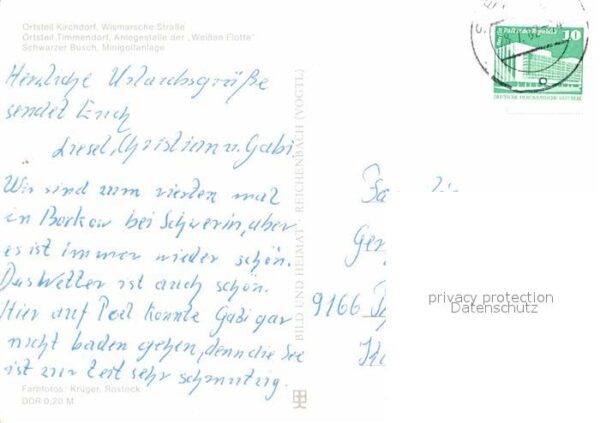 Ortsteil Kirchdorf, Wismarsche Straße
Ortsteil Timmendorf, Anlegestelle der „Weißen Flotte"
Schwarzer Busch, Minigolfanlage
Herzliche Urlaubsgrüße
sendet Euch
Liesel, Christian u. Gabi.
Wir sind zum vierten mal
in Borkow bei Schwerin, aber
es ist immer wieder schön.
Das Wetter ist auch schön.
Hier auf Poel konnte Gabi gar
nicht baden gehen, denn die See
ist zur Zeit sehr schmutzig.
Farbfotos: Krüger, Rostock
DDR 0,20 M
BILD UND HEIMAT REICHENBACH (VOGTL)
Palast der Republik
10
DEUTSCHE DEMOKRATISCHE REPUBLIK
9166
privacy protection
Datenschutz